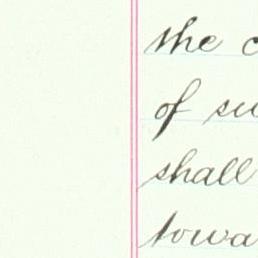 the c
of su
shall
towa